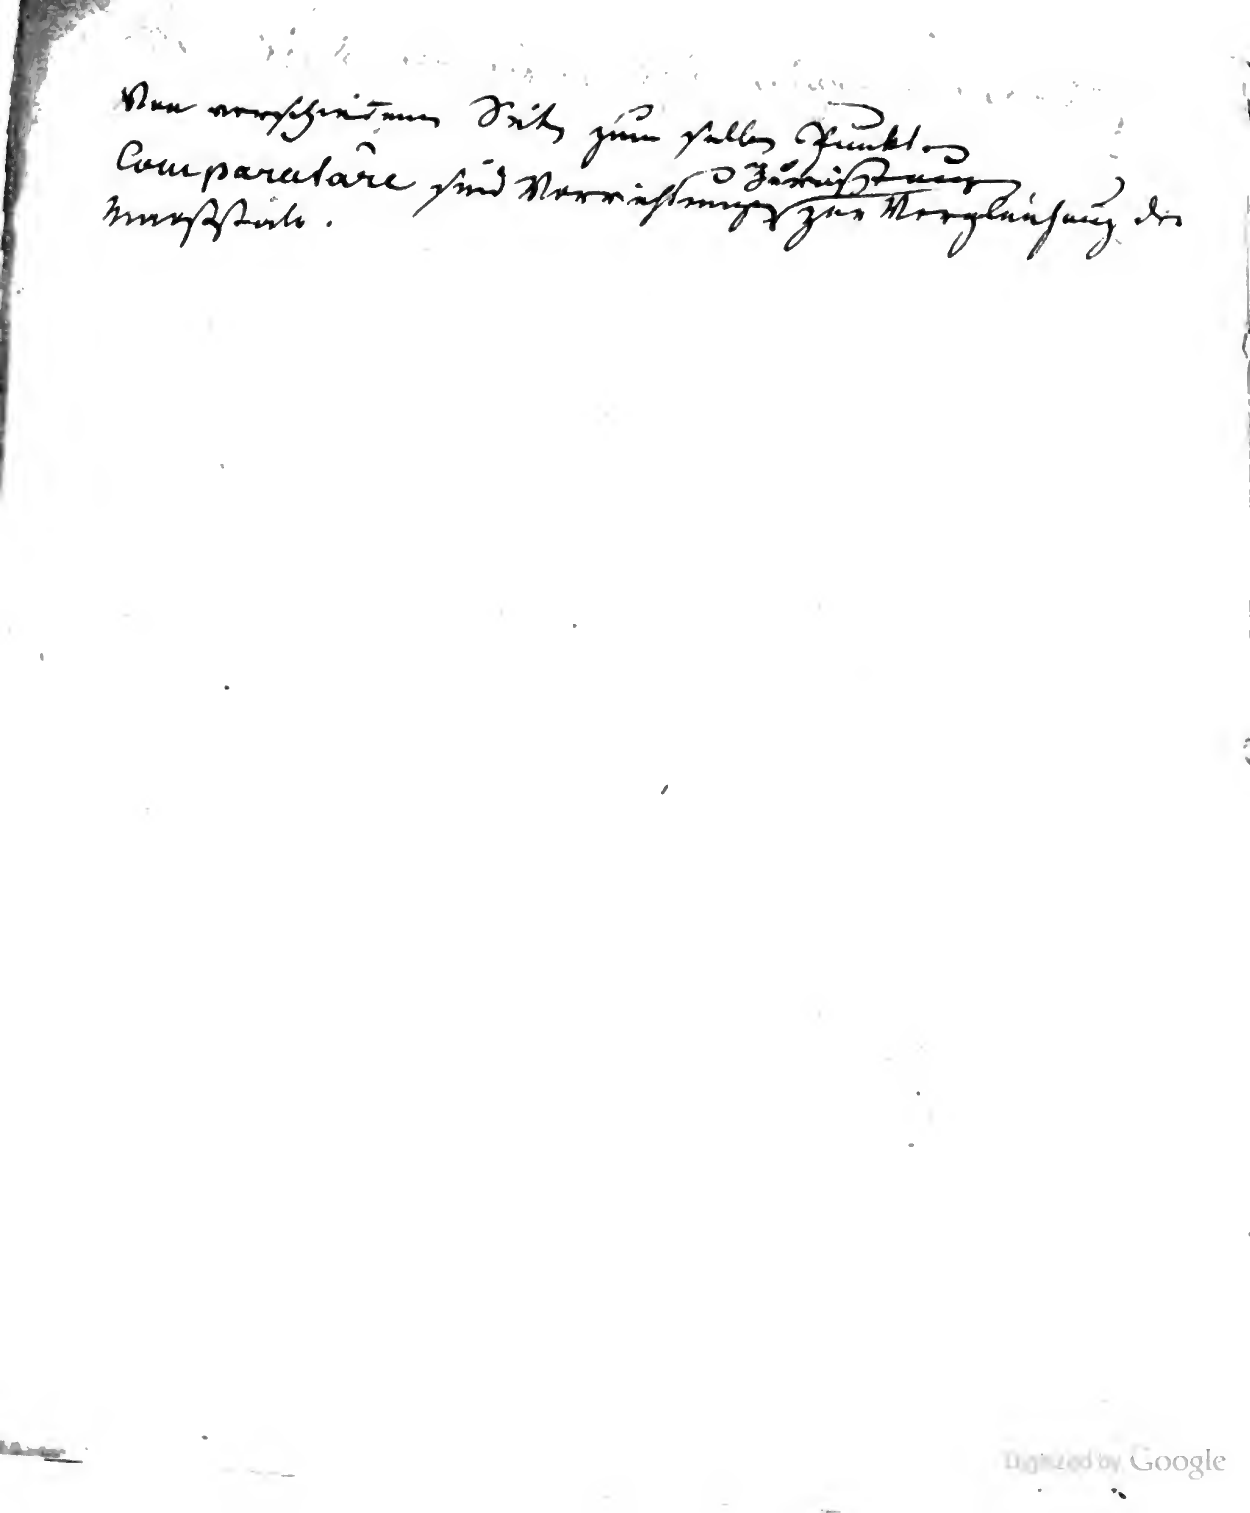 Von verschiedenen Seiten zum selben Punkt.
Comparatäre sind Vorrichtungen zur Vergleichung der
Maasstäbe.
Digitized by Google